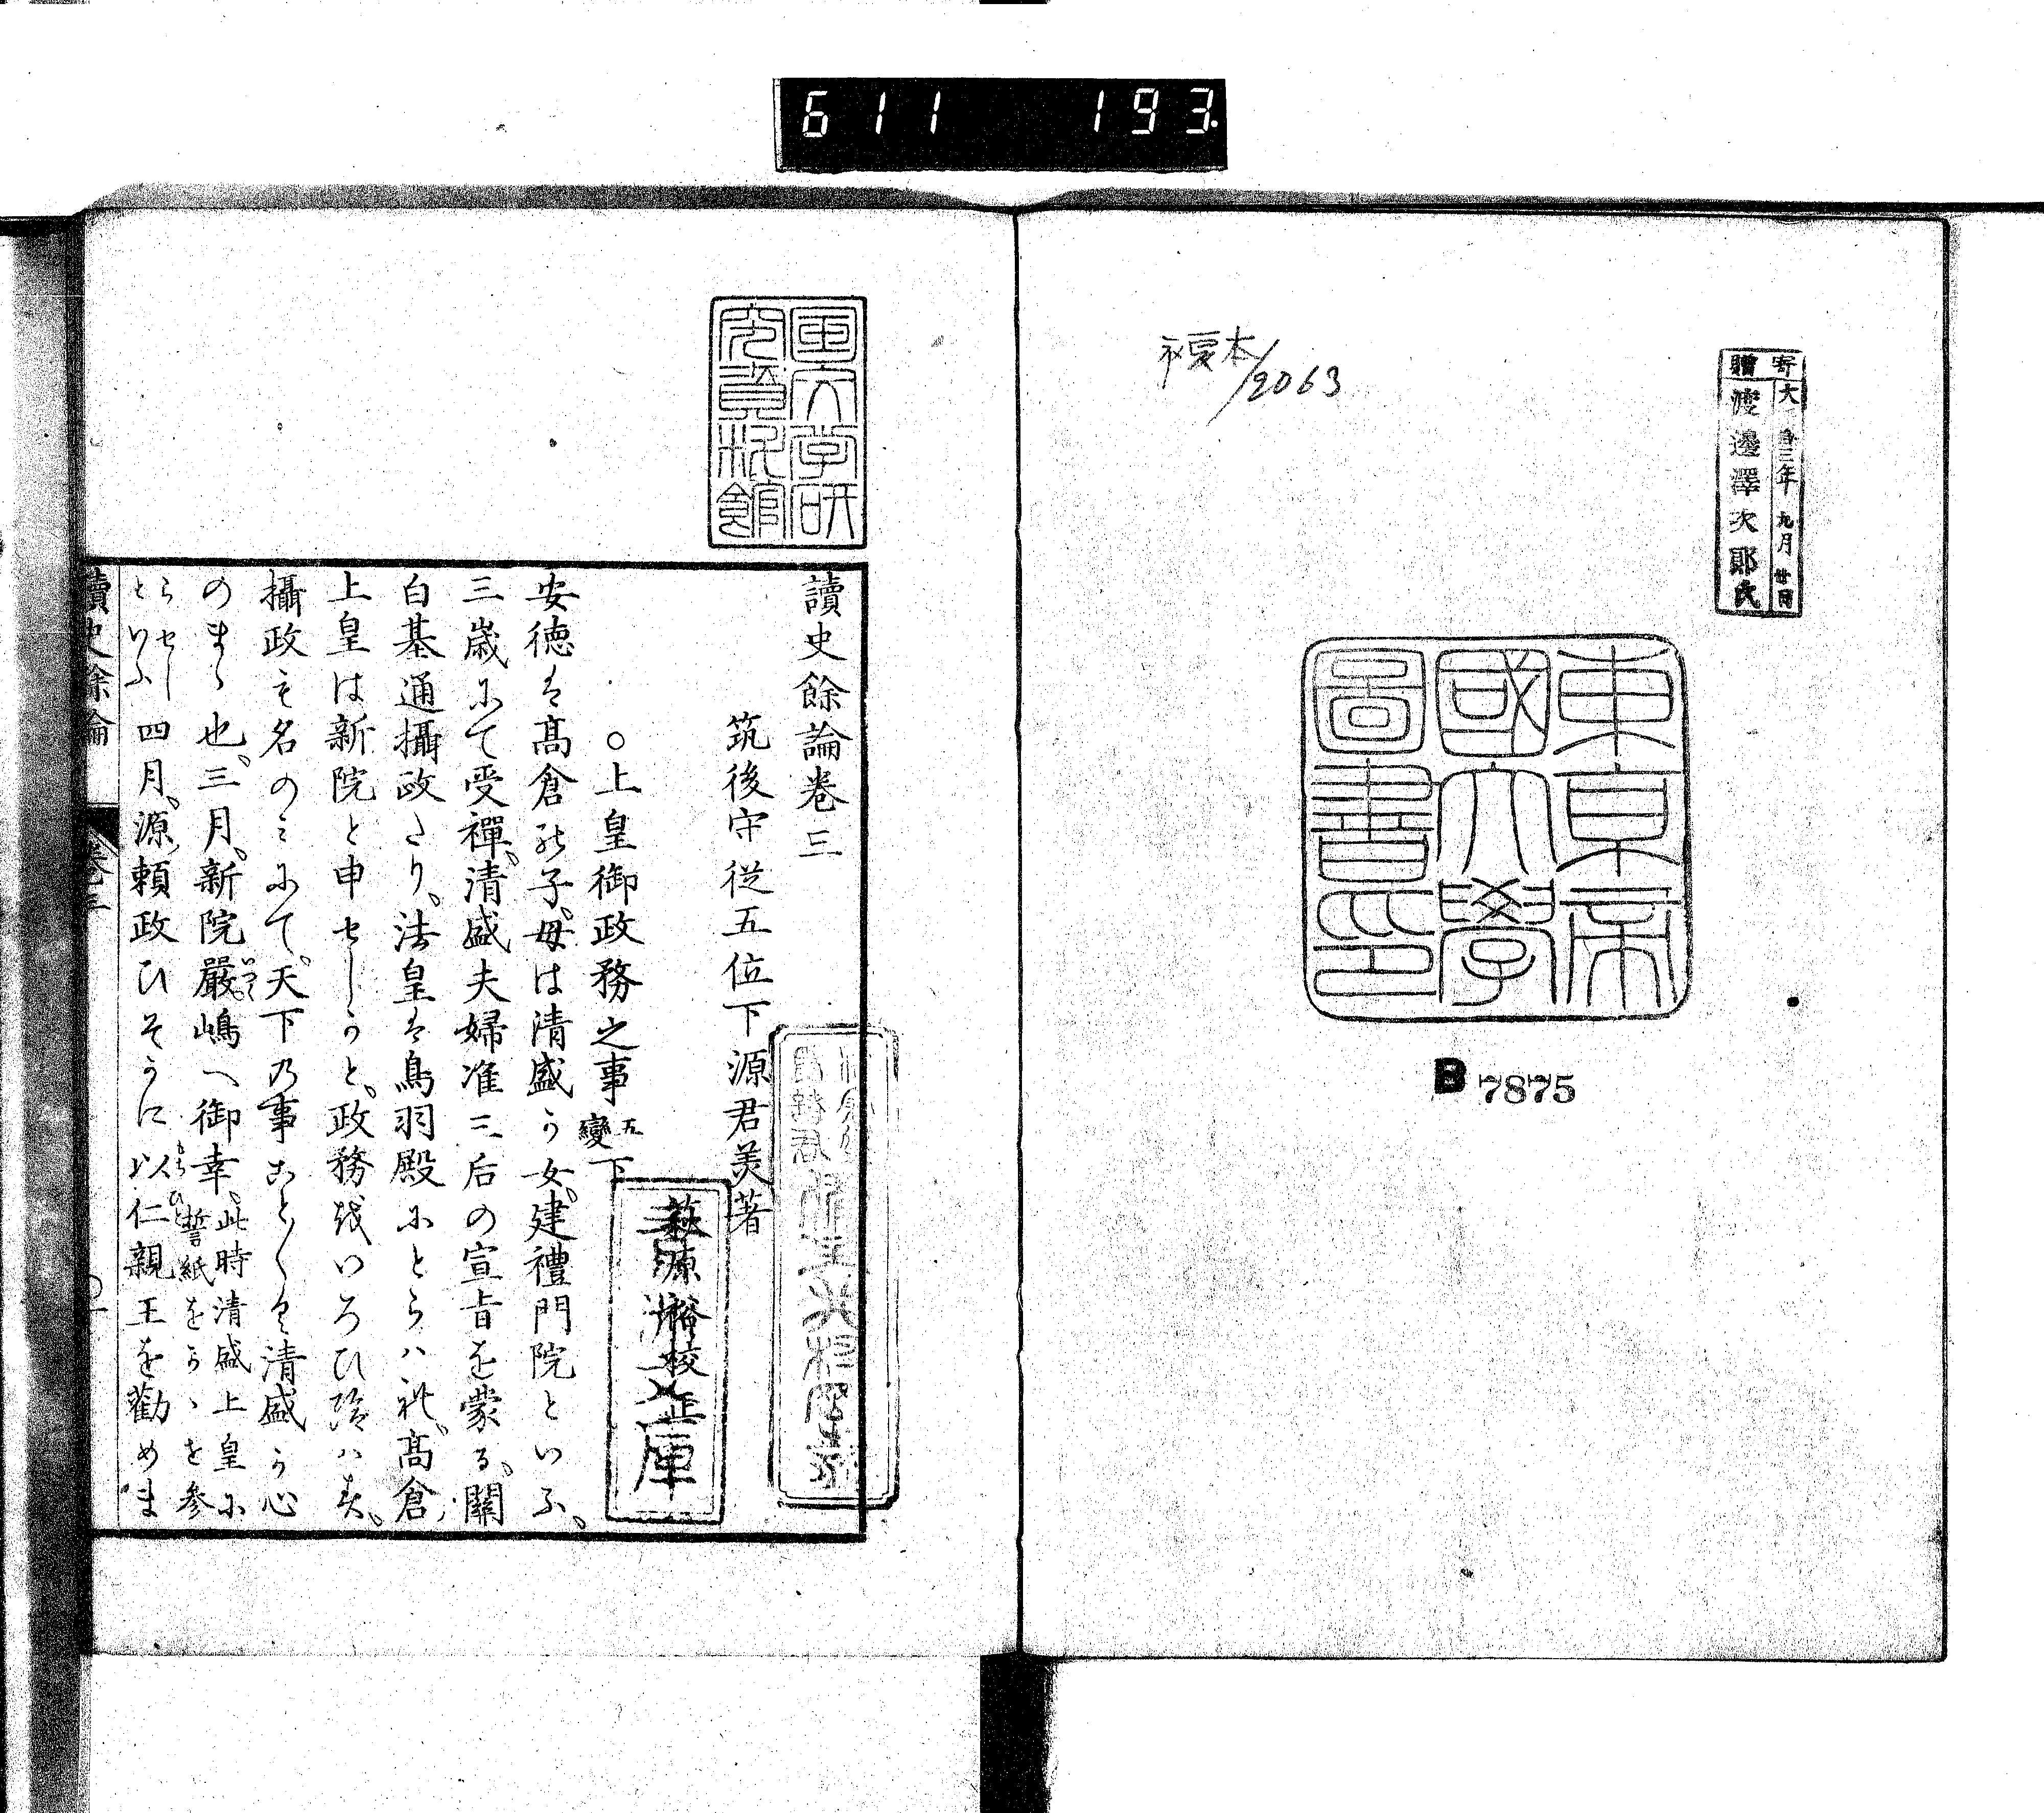 611 193.
寄贈
大正三年九月廿日
渡邊澤次郎氏
複本/2063
東京帝
國大學
圖書印
B 7875
国文学研
究資料館
讀史餘論卷三
筑後守從五位下源君美著
萩原裕校正
文庫
○上皇御政務之事 五變下
安徳は髙倉の子、母は清盛か女、建禮門院といふ、
三歳にて受禪、清盛夫婦准三后の宣旨を蒙る、關
白基通攝政たり、法皇は鳥羽殿にとらハれ、髙倉
上皇は新院と申セしかと、政務をいろひ給ハす、
攝政も名のミにて、天下乃事ことことく清盛か心
のまゝ也、三月、新院嚴嶋へ御幸、此時清盛上皇に誓紙をかゝを参
らセしといふ四月、源頼政ひそかに以仁親王を勸めま
讀史餘論 卷三